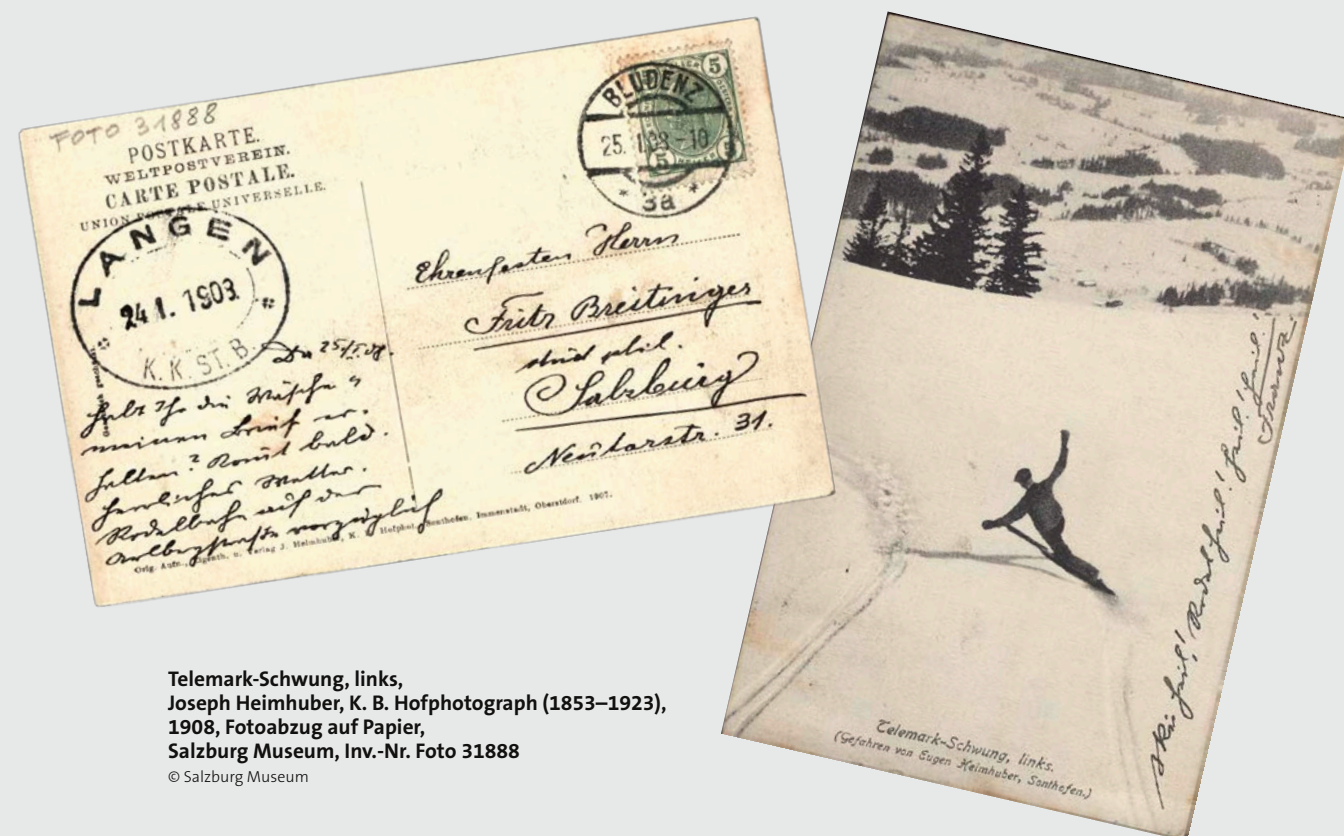 FOTO 31888
POSTKARTE.
WELTPOSTVEREIN.
CARTE POSTALE.
UNION POSTALE UNIVERSELLE.
LANGEN
24.1.1903
K. K. ST. B.
BLUDENZ
25. 1.08 -10
* 3a *
5 5
5 5
Ehrenfesten Herrn
Fritz Breitinger
stud phil.
Salzburg
Neutorstr. 31.
Habt Ihr die Wäsche u
meinen Brief er-
halten? Komt bald.
Herrliches Wetter.
Rodelbahn auf der
Arlbergstraße vorzüglich
Orig. Aufn., u. Verlag J. Heimhuber, K. Hofphot., Sonthofen, Immenstadt, Oberstdorf. 1907.
Ski Heil! Rodel Heil! Heil! Heil!
Telemark-Schwung, links.
(Gefahren von Eugen Heimhuber, Sonthofen.)
Telemark-Schwung, links,
Joseph Heimhuber, K. B. Hofphotograph (1853–1923),
1908, Fotoabzug auf Papier,
Salzburg Museum, Inv.-Nr. Foto 31888
© Salzburg Museum